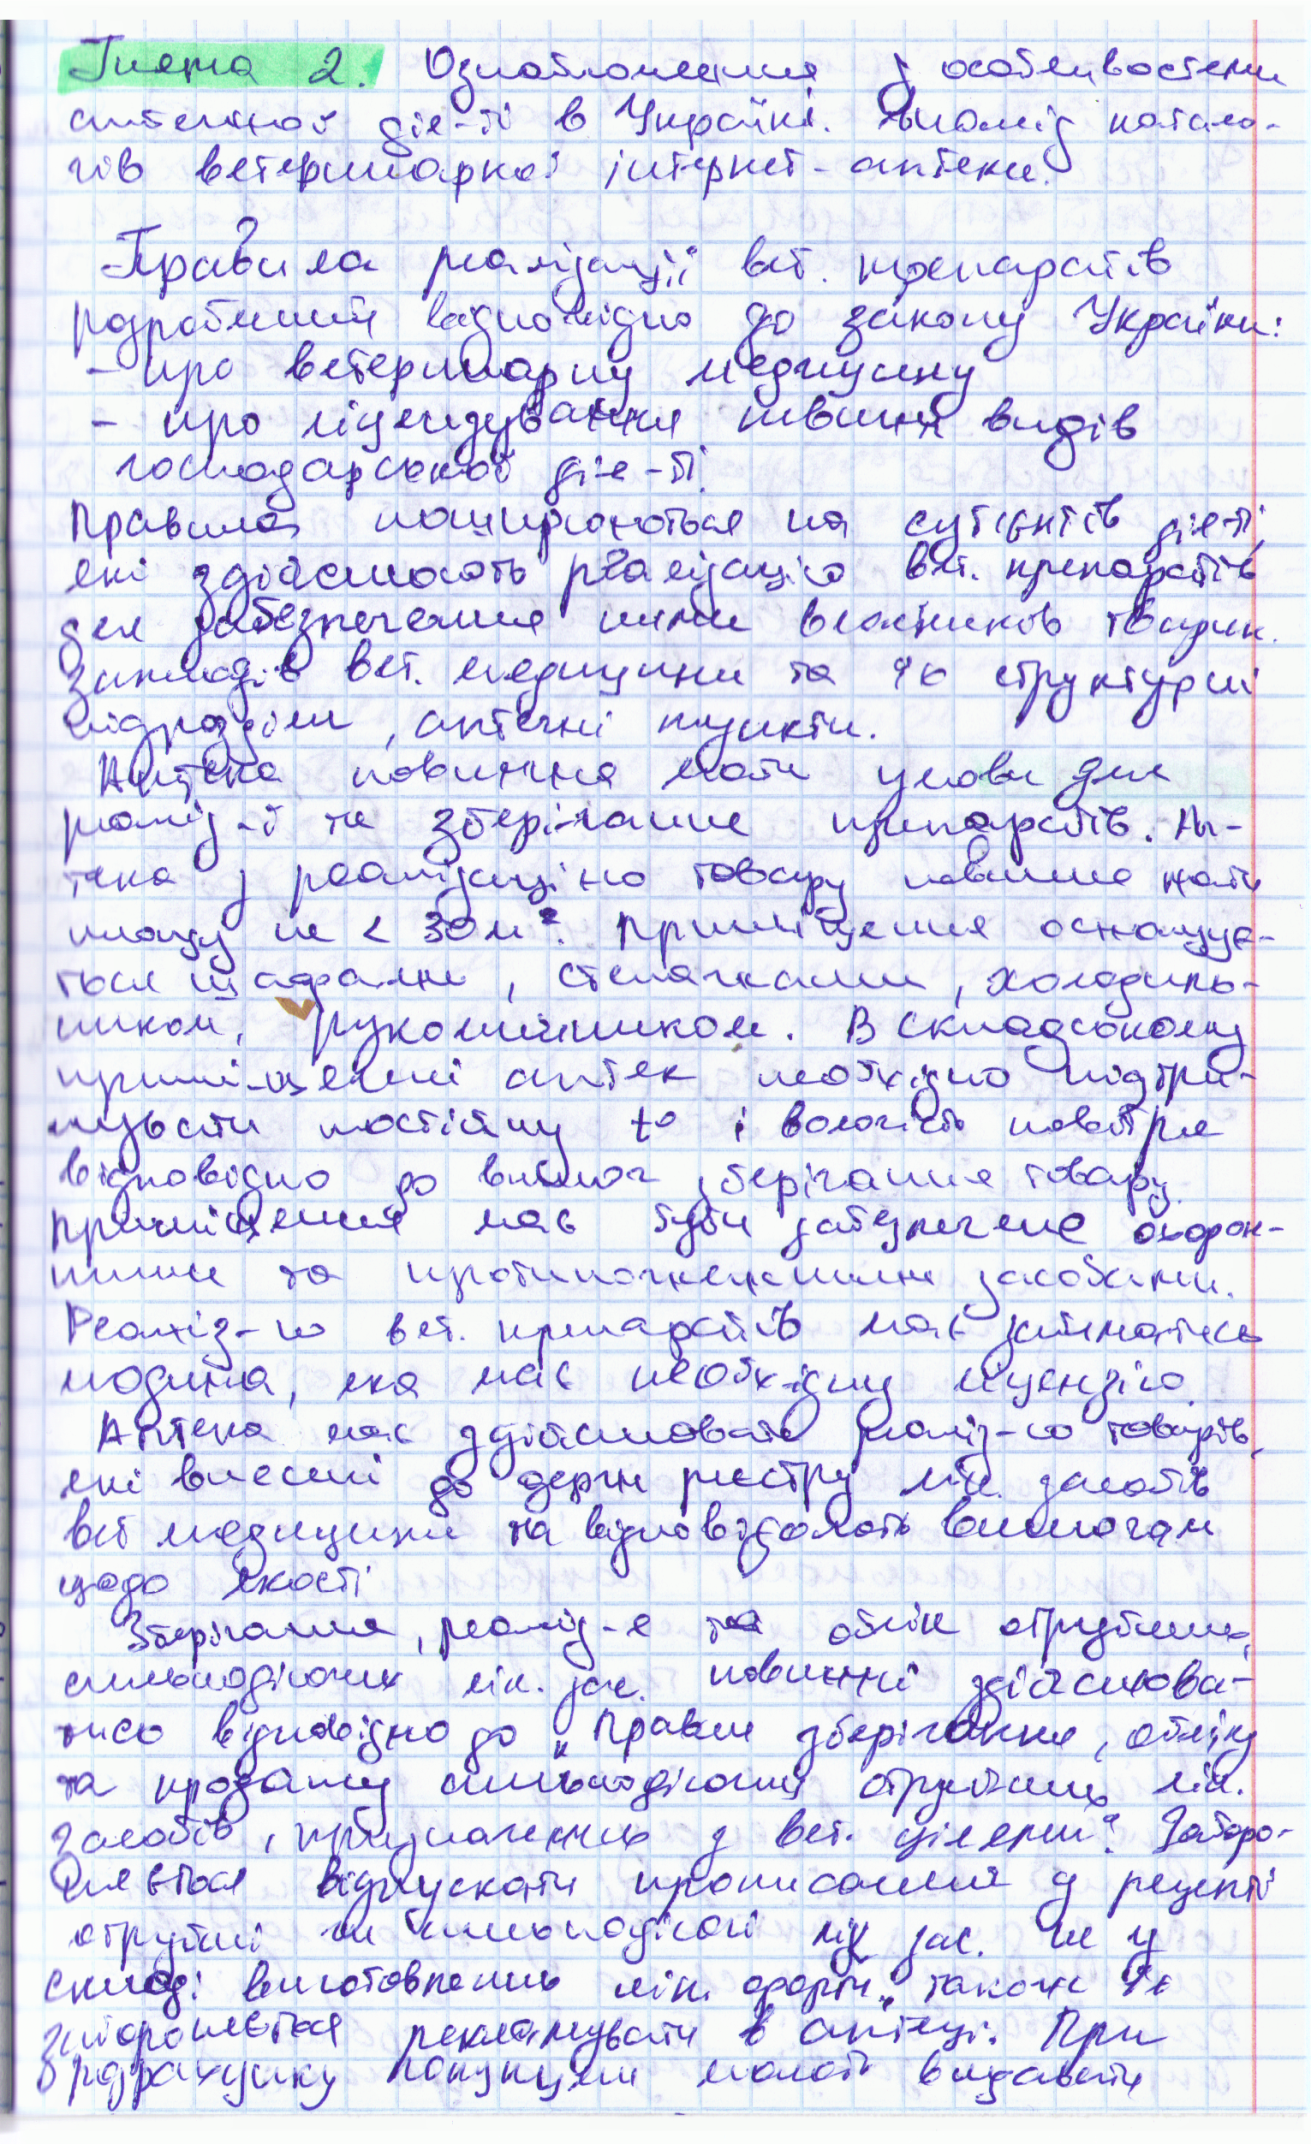 Тема 2. Ознайомлення з особливостями
аптечної дія-ті в Україні. Аналіз катало-
гів ветеринарної інтернет-аптеки.
Правила реалізації вет. препаратів
розроблений відповідно до закону України:
- про ветеринарну медицину
- про ліцензування певних видів
господарської дія-ті.
Правила поширюються на суб'єктів дія-ті,
які здійснюють реалізацію вет. препаратів
для забезпечення ними власників тварин.
Закладів вет. медицини та їх структурні
підрозділи, аптечні пункти.
Аптека повинна мати умови для
реаліз-ї та зберігання препаратів. Ап-
тека з реалізацією товару повинна мати
площу не < 30 м². Приміщення оснащує-
ться шафами, стелажами, холодиль-
ником, рукомийником. В складському
приміщенні аптек необхідно підтри-
мувати постійну t° і вологість повітря
відповідно до вимог зберігання товару.
Приміщення має бути забезпечене охорон-
ними та протипожежними засобами.
Реаліз-ю вет. препаратів має займатись
людина, яка має необхідну ліцензію.
Аптека має здійснювати реаліз-ю товарів,
які внесені до держ реєстру лік. засобів
вет медицини та відповідають вимогам
щодо якості
Зберігання, реаліз-я та облік отруйних,
сильнодіючих лік. зас. повинні здійснюва-
тись відповідно до „Правил зберігання, обліку
та продажу сильнодіючих отруйних лік.
засобів, призначених з вет. цілями". Заборо-
няється відпускати прописання у рецепті
отруйні чи сильнодіючі лік зас. не у
складі виготовлених лік. форм, також їх
забороняється рекламувати в аптеці. При
розрахунку покупцям мають видавати